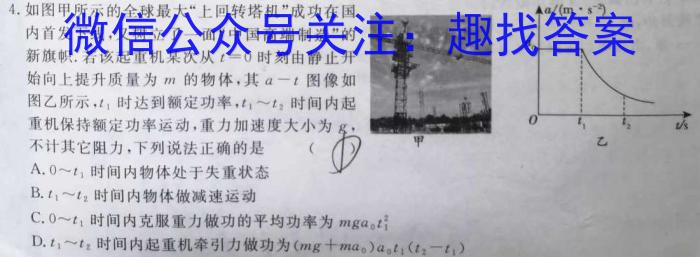 4. 如图甲所示的全球最大“上回转塔机”成功在国
内首发
微信公众号关注：趣找答案
新旗帜. 若该起重机某次从 t=0 时刻由静止开
始向上提升质量为 m 的物体,其 a-t 图像如
图乙所示,t₁ 时达到额定功率,t₁~t₂ 时间内起
重机保持额定功率运动,重力加速度大小为 g,
不计其它阻力,下列说法正确的是 ( D )
A. 0~t₁ 时间内物体处于失重状态
B. t₁~t₂ 时间内物体做减速运动
C. 0~t₁ 时间内克服重力做功的平均功率为 mga₀t₁²
D. t₁~t₂ 时间内起重机牵引力做功为(mg+ma₀)a₀t₁(t₂-t₁)
甲
a/(m·s⁻²)
O
t₁
t₂
t/s
乙